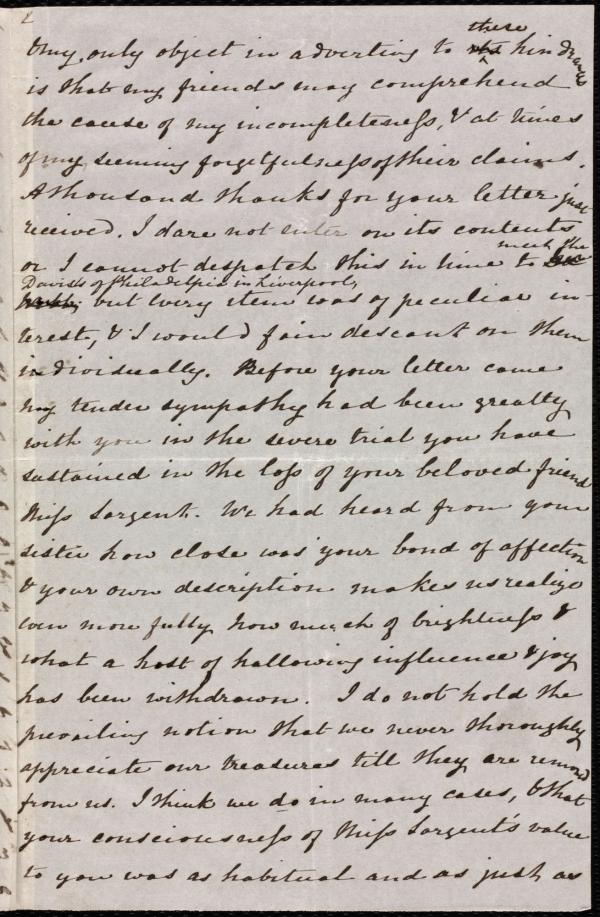 2
& my only object in adverting to these hindrances
is that my friends may comprehend
the cause of my incompleteness, & at times
of my seeming forgetfulness of their claims.
A thousand thanks for your letter just
received. I dare not enter on its contents
or I cannot despatch this in time to meet the
Davis's of Philadelphia in Liverpool,
but every item was of peculiar in-
terest, & I would fain descant on them
individually. Before your letter came
my tender sympathy had been greatly
with you in the severe trial you have
sustained in the loss of your beloved friend
Miss Sargent. We had heard from your
sister how close was your bond of affection
& your own description makes us realize
even more fully how much of brightness &
what a host of hallowing influence & joy
has been withdrawn. I do not hold the
prevailing notion that we never thoroughly
appreciate our treasures till they are removed
from us. I think we do in many cases, & that
your consciousness of Miss Sargent's value
to you was as habitual and as just as